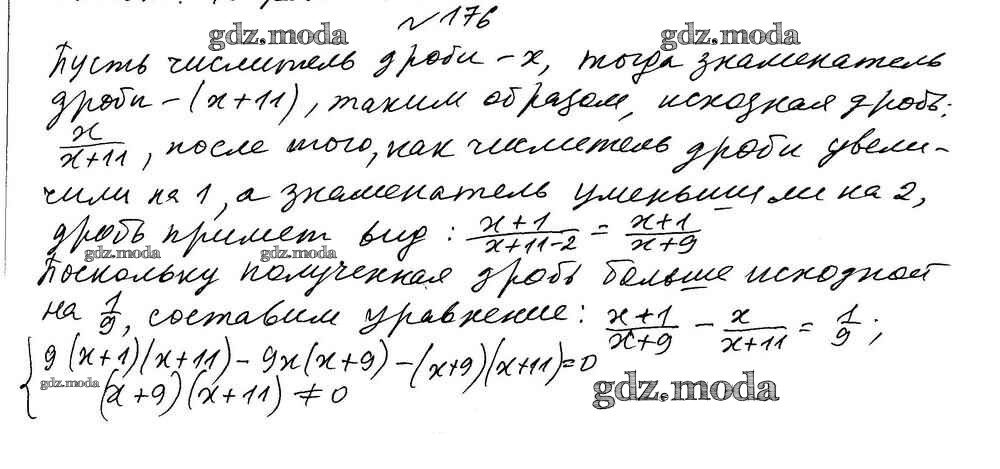 №176
gdz.moda gdz.moda
Пусть числитель дроби – x, тогда знаменатель
дроби – (x+11), таким образом, исходная дробь:
x/(x+11), после того, как числитель дроби увели-
чили на 1, а знаменатель уменьшили на 2,
дробь примет вид: (x+1)/(x+11-2) = (x+1)/(x+9)
gdz.moda gdz.moda
Поскольку полученная дробь больше исходной
на 1/9, составим уравнение: (x+1)/(x+9) – x/(x+11) = 1/9;
{ 9(x+1)(x+11) – 9x(x+9) – (x+9)(x+11)=0
gdz.moda (x+9)(x+11) ≠ 0
gdz.moda